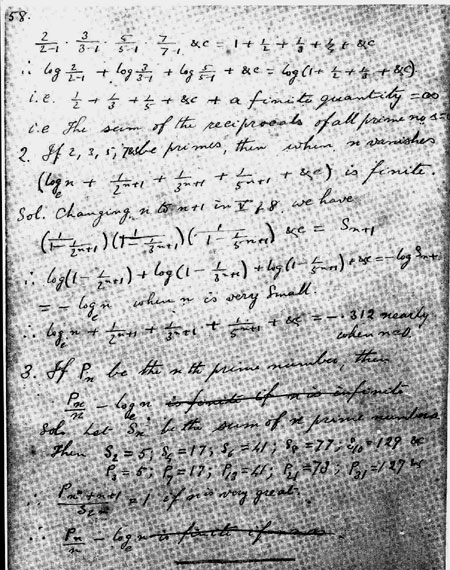 58.
2/(2-1) · 3/(3-1) · 5/(5-1) · 7/(7-1) &c = 1 + 1/2 + 1/3 + 1/4 + &c
∴ log 2/(2-1) + log 3/(3-1) + log 5/(5-1) + &c = log(1 + 1/2 + 1/3 + &c).
i.e. 1/2 + 1/3 + 1/5 + &c + a finite quantity = ∞
i.e The sum of the reciprocals of all prime nos = ∞
2. If 2, 3, 5, 7 &c be primes, then when n vanishes
(log_e n + 1/2^{n+1} + 1/3^{n+1} + 1/5^{n+1} + &c) is finite.
Sol. Changing n to n+1 in V 8. we have
(1/(1 - 1/2^{n+1}))(1/(1 - 1/3^{n+1}))(1/(1 - 1/5^{n+1})) &c = S_{n+1}
∴ log(1 - 1/2^{n+1}) + log(1 - 1/3^{n+1}) + log(1 - 1/5^{n+1}) + &c = -log S_{n+1}
= - log_e n when n is very small.
∴ log_e n + 1/2^{n+1} + 1/3^{n+1} + 1/5^{n+1} + &c = -.312 nearly
when n=0.
3. If P_n be the nth prime number, then
P_n/n - log_e n is finite if n is infinite
Sol. Let S_n be the sum of n prime numbers
Then S_2 = 5; S_4 = 17; S_6 = 41; S_8 = 77; S_10 = 129 &c
P_3 = 5; P_7 = 17; P_13 = 41; P_21 = 73; P_31 = 127 &c
∴ = 1 if n is very great.
∴ P_n/n - log_e n is finite if